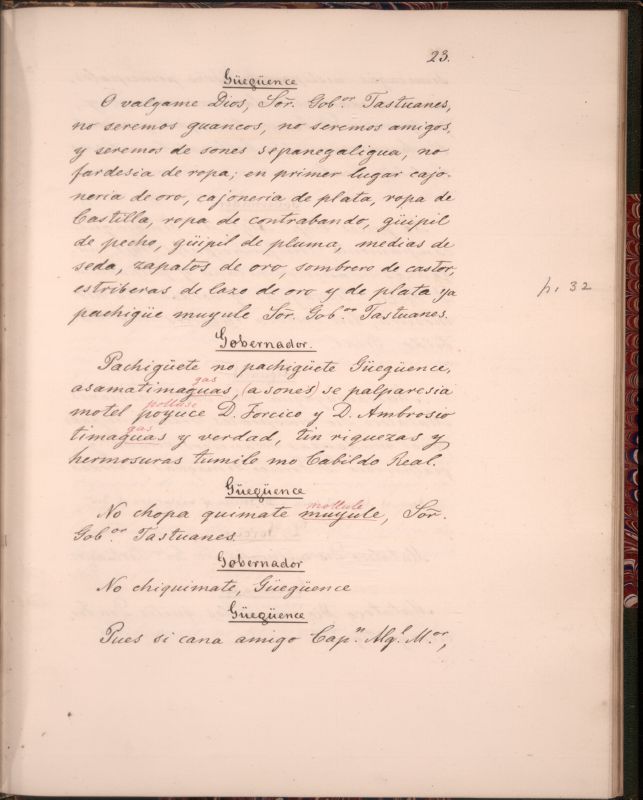 23.
Güegüence
O valgame Dios, Sor. Gob.or Tastuanes,
no seremos guancos, no seremos amigos,
y seremos de sones sepanegaligua, no
fardesia de ropa; en primer lugar cajo-
neria de oro, cajoneria de plata, ropa de
Castilla, ropa de contrabando, güipil
de pecho, güipil de pluma, medias de
seda, zapatos de oro, sombrero de castor,
estriberas de lazo de oro y de plata ya
p. 32
pachigüe muyule Sor. Gob.or Tastuanes.
Gobernador.
Pachigüete no pachigüete Güegüence,
gas
asamatimaguas, (a sones) se palparesia
pollise
motel poyuce D. Forcico y D. Ambrosio
gas
timaguas y verdad, tin riquezas y
hermosuras tumile mo Cabildo Real.
Güegüence
mollule
No chopa quimate muyule, Sor.
Gob.or Tastuanes.
Gobernador
No chiquimate, Güegüence
Güegüence
Pues si cana amigo Cap.n Alg.l M.or,